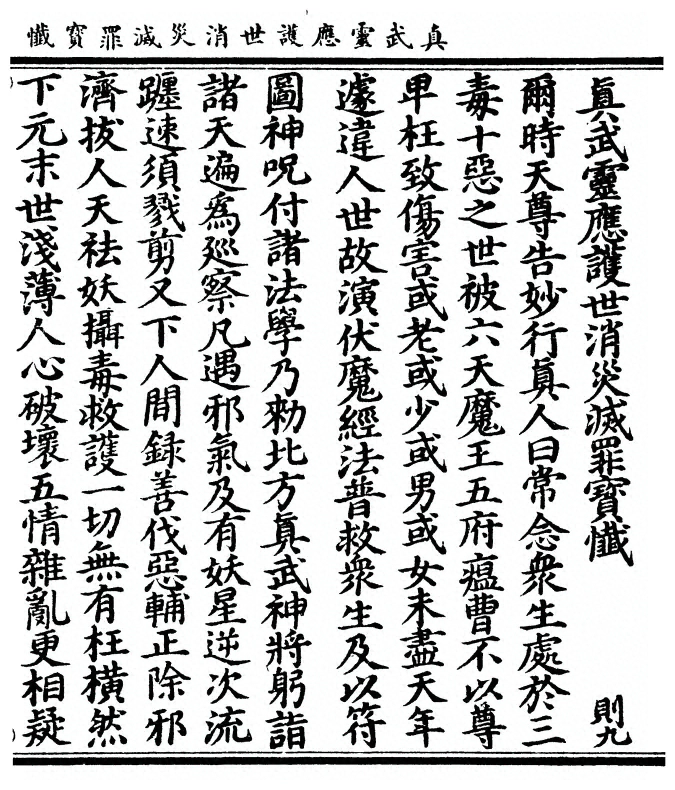 真武靈應護世消災滅罪寶懺
眞武靈應護世消災滅罪寶懺
則九
爾時天尊告妙行眞人曰常念衆生處於三
毒十惡之世被六天魔王五府瘟曹不以尊
甲枉致傷害或老或少或男或女未盡天年
遽違人世故演伏魔經法普救衆生及以符
圖神呪付諸法學乃勑北方眞武神將躬詣
諸天遍爲廵察凡遇邪氣及有妖星逆次流
躔速須戮剪又下人間録善伐惡輔正除邪
濟拔人天祛妖攝毒救護一切無有枉横然
下元末世淺薄人心破壞五情雜亂更相疑